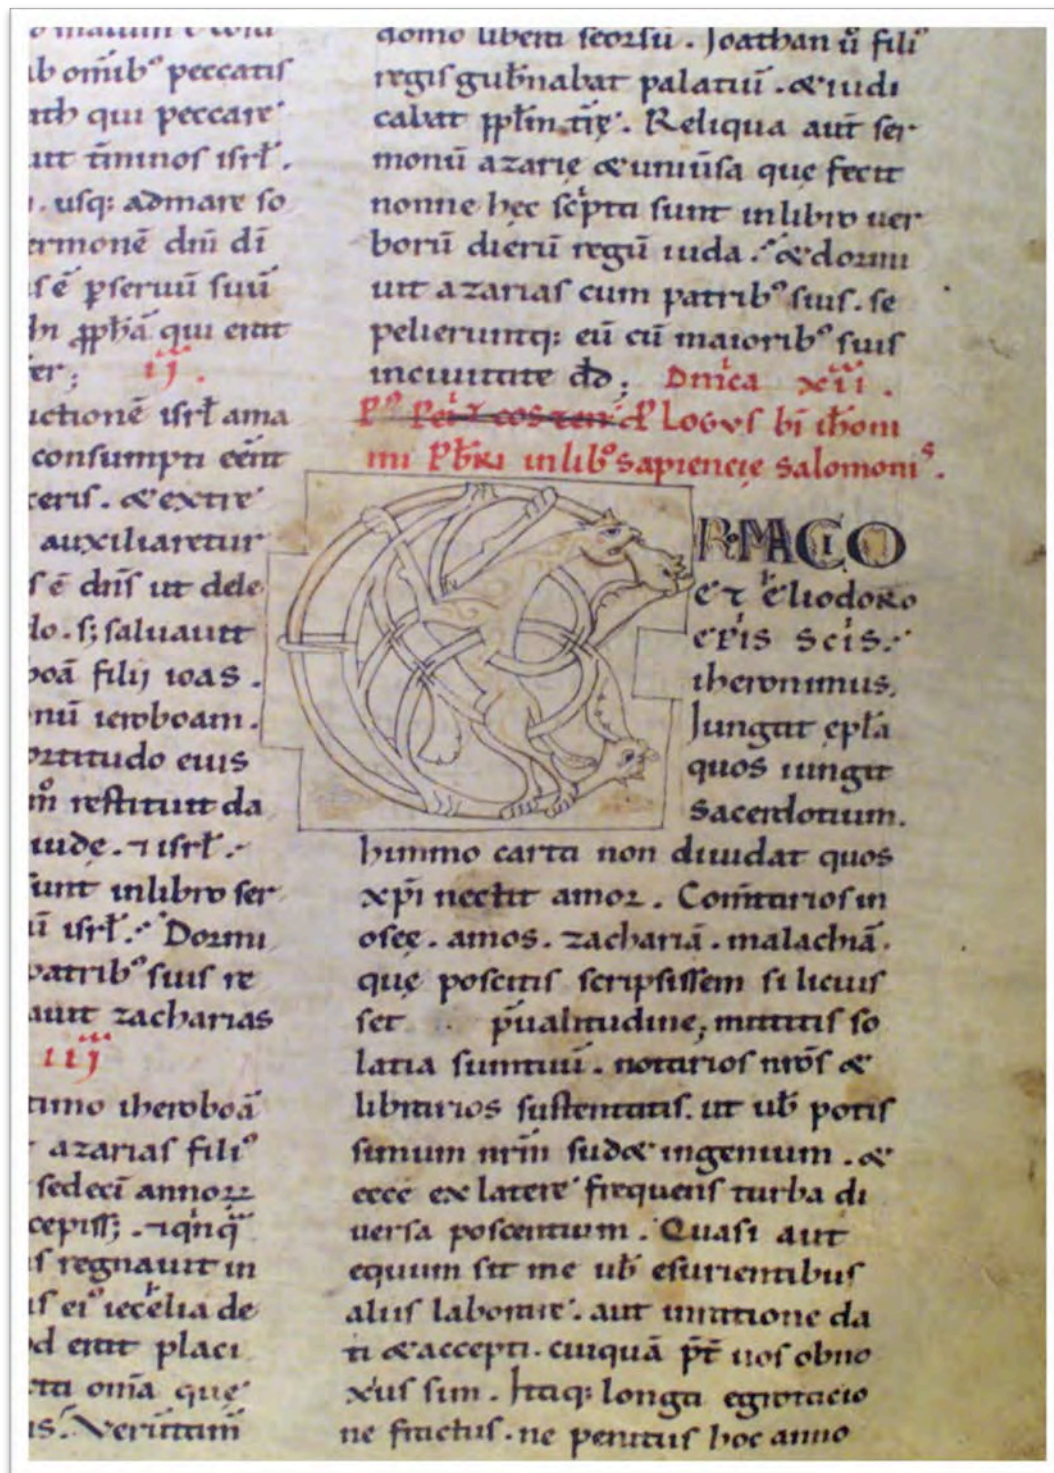 ab omīb⁹ peccatis
qui peccare
tīminos isrł.
. usq: admare so
ermonē dnī dī
sē p̱seruū suū
ꝓph̄ā qui erat
er; ij.
uctionē isrł ama
consumpti eēnt
ceris. & extre
auxiliaretur
s ē dn̄s ut dele
do. s; saluauit
boā filij ioas.
onū ieroboam.
ortitudo euis
restituit da
iudę. ⁊ isrł.
sunt inlibro ser
isrł. Dormi
patrib⁹ suis re
auit zacharias
iij
timo iheroboā
azarias fili⁹
sedecī annoꝝ
cepiss;. ⁊
s regnauit in
s ei⁹ iecͪelia de
od erat placi
omīa que
us. Verūtam̄
domo libera seorsū. Joathan ū fili⁹
regis gub̄nabat palatiū. & iudi
cabat ppl̄m tr̄ę. Reliqua aut̄ ser
monū azarię & uniūsa que fecit
nonne hec scͥpta sunt inlibro uer
borū dierū regū iuda. & dormi
uit azarias cum patrib⁹ suis. se
pelieruntq: eū cū maiorib⁹ suis
inciuitate dd̄; Dnīca xiii.
PLOGVS bī ih̄oni
mi Pb̄ri inlib⁰ sapiencię salomoniˢ.
RMACIO
et ͪeliodoro
epͥis scͥis.
iheronimus.
Jungat epl̄a
quos iungit
sacerdotium.
himmo carta non diuidat quos
xp̄i nectit amor. Com̄tarios in
oseę. amos. zachariā. malachiā.
quę poscitis scripsissem si licuis
set p̄ualitudine; mittitis so
latia sumtuū. notarios nr̄os &
librarios sustentatis. ut ub̄ potis
simum nr̄m sud& ingenium. &
ecce ex latere frequens turba di
uersa poscentium. Quasi aut
equum sit me ub̄ esurientibus
aliis laborare. aut inratione da
ti & accepti. cuiquā p̄t̄ uos obno
xius sim. Itaq: longa egrotacio
ne fractus. ne penitus hoc anno